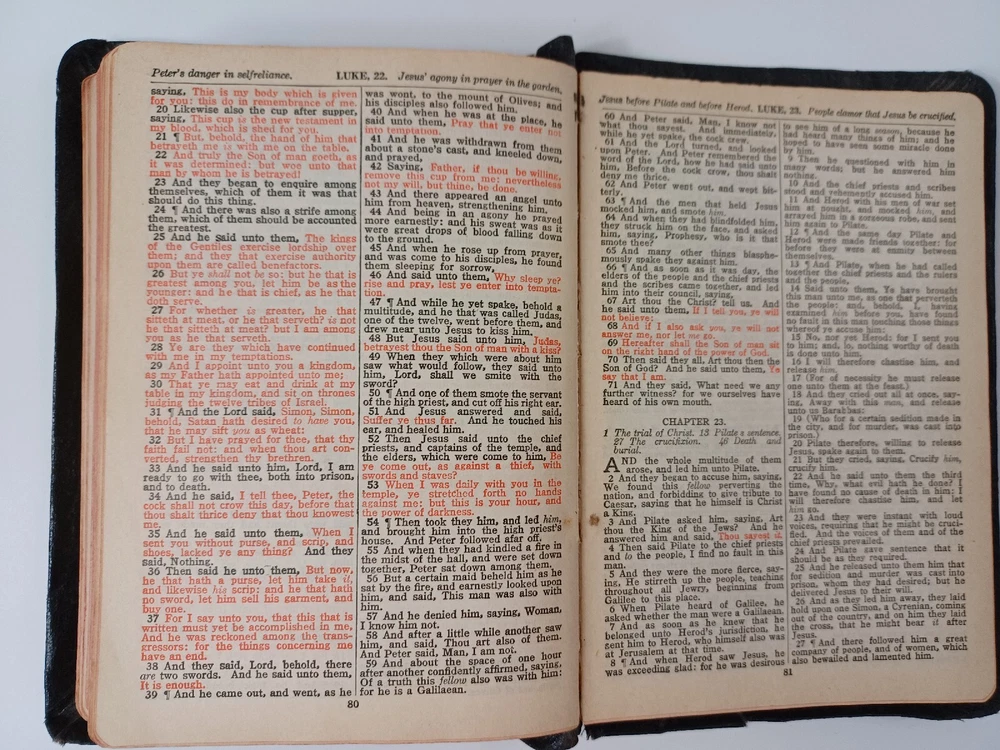 Peter's danger in selfreliance. LUKE, 22. Jesus' agony in prayer in the garden.
saying, This is my body which is given
for you: this do in remembrance of me.
20 Likewise also the cup after supper,
saying, This cup is the new testament in
my blood, which is shed for you.
21 ¶ But, behold, the hand of him that
betrayeth me is with me on the table.
22 And truly the Son of man goeth, as
it was determined: but woe unto that
man by whom he is betrayed!
23 And they began to enquire among
themselves, which of them it was that
should do this thing.
24 ¶ And there was also a strife among
them, which of them should be accounted
the greatest.
25 And he said unto them, The kings
of the Gentiles exercise lordship over
them; and they that exercise authority
upon them are called benefactors.
26 But ye shall not be so: but he that is
greatest among you, let him be as the
younger: and he that is chief, as he that
doth serve.
27 For whether is greater, he that
sitteth at meat, or he that serveth? is not
he that sitteth at meat? but I am among
you as he that serveth.
28 Ye are they which have continued
with me in my temptations.
29 And I appoint unto you a kingdom,
as my Father hath appointed unto me;
30 That ye may eat and drink at my
table in my kingdom, and sit on thrones
judging the twelve tribes of Israel.
31 ¶ And the Lord said, Simon, Simon,
behold, Satan hath desired to have you,
that he may sift you as wheat:
32 But I have prayed for thee, that thy
faith fail not: and when thou art con-
verted, strengthen thy brethren.
33 And he said unto him, Lord, I am
ready to go with thee, both into prison,
and to death.
34 And he said, I tell thee, Peter, the
cock shall not crow this day, before that
thou shalt thrice deny that thou knowest
me.
35 And he said unto them, When I
sent you without purse, and scrip, and
shoes, lacked ye any thing? And they
said, Nothing.
36 Then said he unto them, But now,
he that hath a purse, let him take it,
and likewise his scrip: and he that hath
no sword, let him sell his garment, and
buy one.
37 For I say unto you, that this that is
written must yet be accomplished in me,
And he was reckoned among the trans-
gressors: for the things concerning me
have an end.
38 And they said, Lord, behold, there
are two swords. And he said unto them,
It is enough.
39 ¶ And he came out, and went, as he
was wont, to the mount of Olives; and
his disciples also followed him.
40 And when he was at the place, he
said unto them, Pray that ye enter not
into temptation.
41 And he was withdrawn from them
about a stone's cast, and kneeled down,
and prayed,
42 Saying, Father, if thou be willing,
remove this cup from me: nevertheless
not my will, but thine, be done.
43 And there appeared an angel unto
him from heaven, strengthening him.
44 And being in an agony he prayed
more earnestly: and his sweat was as it
were great drops of blood falling down
to the ground.
45 And when he rose up from prayer,
and was come to his disciples, he found
them sleeping for sorrow,
46 And said unto them, Why sleep ye?
rise and pray, lest ye enter into tempta-
tion.
47 ¶ And while he yet spake, behold a
multitude, and he that was called Judas,
one of the twelve, went before them, and
drew near unto Jesus to kiss him.
48 But Jesus said unto him, Judas,
betrayest thou the Son of man with a kiss?
49 When they which were about him
saw what would follow, they said unto
him, Lord, shall we smite with the
sword?
50 ¶ And one of them smote the servant
of the high priest, and cut off his right ear.
51 And Jesus answered and said,
Suffer ye thus far. And he touched his
ear, and healed him.
52 Then Jesus said unto the chief
priests, and captains of the temple, and
the elders, which were come to him, Be
ye come out, as against a thief, with
swords and staves?
53 When I was daily with you in the
temple, ye stretched forth no hands
against me: but this is your hour, and
the power of darkness.
54 ¶ Then took they him, and led him,
and brought him into the high priest's
house. And Peter followed afar off.
55 And when they had kindled a fire in
the midst of the hall, and were set down
together, Peter sat down among them.
56 But a certain maid beheld him as he
sat by the fire, and earnestly looked upon
him, and said, This man was also with
him.
57 And he denied him, saying, Woman,
I know him not.
58 And after a little while another saw
him, and said, Thou art also of them.
And Peter said, Man, I am not.
59 And about the space of one hour
after another confidently affirmed, saying,
Of a truth this fellow also was with him:
for he is a Galilaean.
80
Jesus before Pilate and before Herod. LUKE, 23. People clamor that Jesus be crucified.
60 And Peter said, Man, I know not
what thou sayest. And immediately,
while he yet spake, the cock crew.
61 And the Lord turned, and looked
upon Peter. And Peter remembered the
word of the Lord, how he had said unto
him, Before the cock crow, thou shalt
deny me thrice.
62 And Peter went out, and wept bit-
terly.
63 ¶ And the men that held Jesus
mocked him, and smote him.
64 And when they had blindfolded him,
they struck him on the face, and asked
him, saying, Prophesy, who is it that
smote thee?
65 And many other things blasphe-
mously spake they against him.
66 ¶ And as soon as it was day, the
elders of the people and the chief priests
and the scribes came together, and led
him into their council, saying,
67 Art thou the Christ? tell us. And
he said unto them, If I tell you, ye will
not believe:
68 And if I also ask you, ye will not
answer me, nor let me go.
69 Hereafter shall the Son of man sit
on the right hand of the power of God.
70 Then said they all, Art thou then the
Son of God? And he said unto them, Ye
say that I am.
71 And they said, What need we any
further witness? for we ourselves have
heard of his own mouth.
CHAPTER 23.
1 The trial of Christ. 13 Pilate's sentence.
27 The crucifixion. 46 Death and
burial.
AND the whole multitude of them
arose, and led him unto Pilate.
2 And they began to accuse him, saying,
We found this fellow perverting the
nation, and forbidding to give tribute to
Caesar, saying that he himself is Christ
a King.
3 And Pilate asked him, saying, Art
thou the King of the Jews? And he
answered him and said, Thou sayest it.
4 Then said Pilate to the chief priests
and to the people, I find no fault in this
man.
5 And they were the more fierce, say-
ing, He stirreth up the people, teaching
throughout all Jewry, beginning from
Galilee to this place.
6 When Pilate heard of Galilee, he
asked whether the man were a Galilaean.
7 And as soon as he knew that he
belonged unto Herod's jurisdiction, he
sent him to Herod, who himself also was
at Jerusalem at that time.
8 ¶ And when Herod saw Jesus, he
was exceeding glad: for he was desirous
to see him of a long season, because he
had heard many things of him; and he
hoped to have seen some miracle done
by him.
9 Then he questioned with him in
many words; but he answered him
nothing.
10 And the chief priests and scribes
stood and vehemently accused him.
11 And Herod with his men of war set
him at nought, and mocked him, and
arrayed him in a gorgeous robe, and sent
him again to Pilate.
12 ¶ And the same day Pilate and
Herod were made friends together: for
before they were at enmity between
themselves.
13 ¶ And Pilate, when he had called
together the chief priests and the rulers
and the people,
14 Said unto them, Ye have brought
this man unto me, as one that perverteth
the people: and, behold, I, having
examined him before you, have found
no fault in this man touching those things
whereof ye accuse him:
15 No, nor yet Herod: for I sent you
to him; and, lo, nothing worthy of death
is done unto him.
16 I will therefore chastise him, and
release him.
17 (For of necessity he must release
one unto them at the feast.)
18 And they cried out all at once, say-
ing, Away with this man, and release
unto us Barabbas:
19 (Who for a certain sedition made in
the city, and for murder, was cast into
prison.)
20 Pilate therefore, willing to release
Jesus, spake again to them.
21 But they cried, saying, Crucify him,
crucify him.
22 And he said unto them the third
time, Why, what evil hath he done? I
have found no cause of death in him: I
will therefore chastise him, and let
him go.
23 And they were instant with loud
voices, requiring that he might be cruci-
fied. And the voices of them and of the
chief priests prevailed.
24 And Pilate gave sentence that it
should be as they required.
25 And he released unto them him that
for sedition and murder was cast into
prison, whom they had desired; but he
delivered Jesus to their will.
26 And as they led him away, they laid
hold upon one Simon, a Cyrenian, coming
out of the country, and on him they laid
the cross, that he might bear it after
Jesus.
27 ¶ And there followed him a great
company of people, and of women, which
also bewailed and lamented him.
81